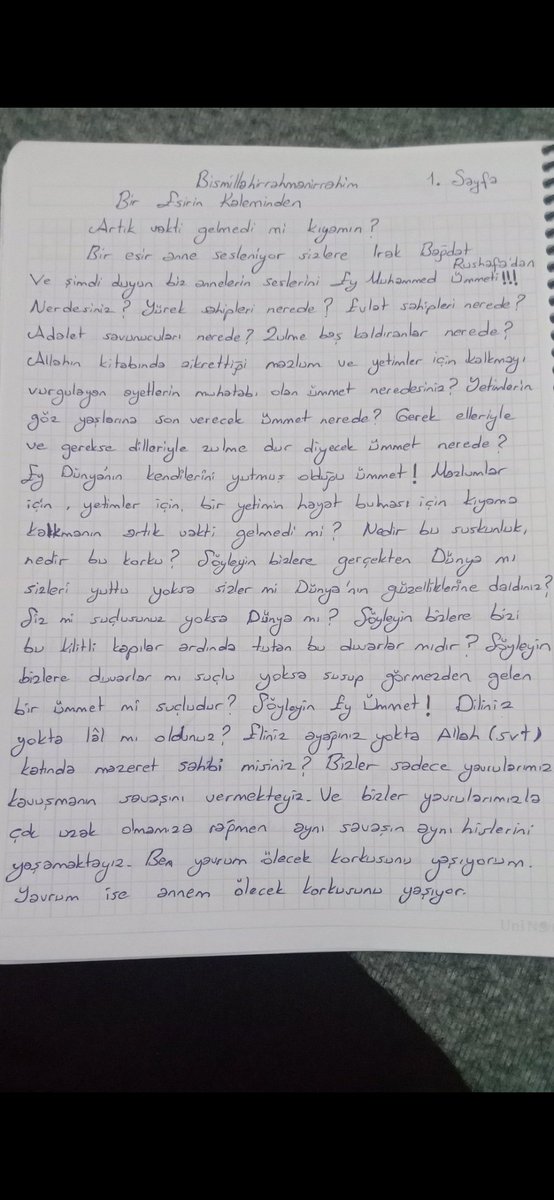 Bismillahirrahmanirrahim 1. Sayfa
Bir Esirin Kaleminden
Artık vakti gelmedi mi kıyamın?
Bir esir anne sesleniyor sizlere Irak Bağdat
Rushafa'dan
Ve şimdi duyun biz annelerin seslerini Ey Muhammed Ümmeti!!!
Nerdesiniz? Yürek sahipleri nerede? Evlat sahipleri nerede?
Adalet savunucuları nerede? Zulme baş kaldıranlar nerede?
Allahın kitabında zikrettiği mazlum ve yetimler için kalkmayı
vurgulayan ayetlerin muhatabı olan ümmet neredesiniz? Yetimlerin
göz yaşlarına son verecek ümmet nerede? Gerek elleriyle
ve gerekse dilleriyle zulme dur diyecek ümmet nerede?
Ey Dünya'nın kendilerini yutmuş olduğu ümmet! Mazlumlar
için, yetimler için, bir yetimin hayat bulması için kıyama
kalkmanın artık vakti gelmedi mi? Nedir bu suskunluk,
nedir bu korku? Söyleyin bizlere gerçekten Dünya mı
sizleri yuttu yoksa sizler mi Dünya'nın güzelliklerine daldınız?
Siz mi suçlusunuz yoksa Dünya mı? Söyleyin bizlere bizi
bu kilitli kapılar ardında tutan bu duvarlar mıdır? Söyleyin
bizlere duvarlar mı suçlu yoksa susup görmezden gelen
bir ümmet mi suçludur? Söyleyin Ey Ümmet! Diliniz
yokta lâl mı oldunuz? Eliniz ayağınız yokta Allah (svt)
katında mazeret sahibi misiniz? Bizler sadece yavrularımız
kavuşmanın savaşını vermekteyiz. Ve bizler yavrularımızla
çok uzak olmamıza rağmen aynı savaşın aynı hislerini
yaşamaktayız. Ben yavrum ölecek korkusunu yaşıyorum.
Yavrum ise annem ölecek korkusunu yaşıyor.